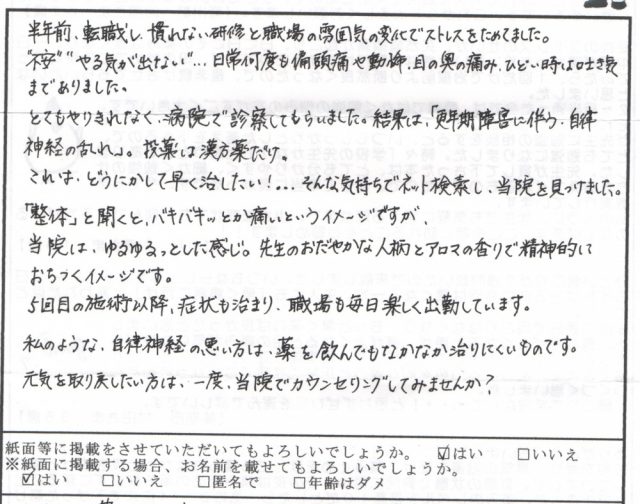 半年前、転職し、慣れない研修と職場の雰囲気の変化でストレスをためてました。
"不安" "やる気が出ない"… 日常何度も偏頭痛や動悸、目の奥の痛み、ひどい時は吐き気
までありました。
とてもやりきれなく、病院で診察してもらいました。結果は、「更年期障害に伴う、自律
神経の乱れ」。投薬は漢方薬だけ。
これは、どうにかして早く治したい!… そんな気持ちでネット検索し、当院を見つけました。
「整体」と聞くと、バキバキッとか痛いというイメージですが、
当院は、ゆるゆるっとした感じ。先生のおだやかな人柄とアロマの香りで精神的に
おちつくイメージです。
5回目の施術以降、症状も治まり、職場も毎日楽しく出勤しています。
私のような、自律神経の悪い方は、薬を飲んでもなかなか治りにくいものです。
元気を取り戻したい方は、一度、当院でカウンセリングしてみませんか?
紙面等に掲載をさせていただいてもよろしいでしょうか。 ☑はい □いいえ
※紙面に掲載する場合、お名前を載せてもよろしいでしょうか。
☑はい □いいえ □匿名で □年齢はダメ